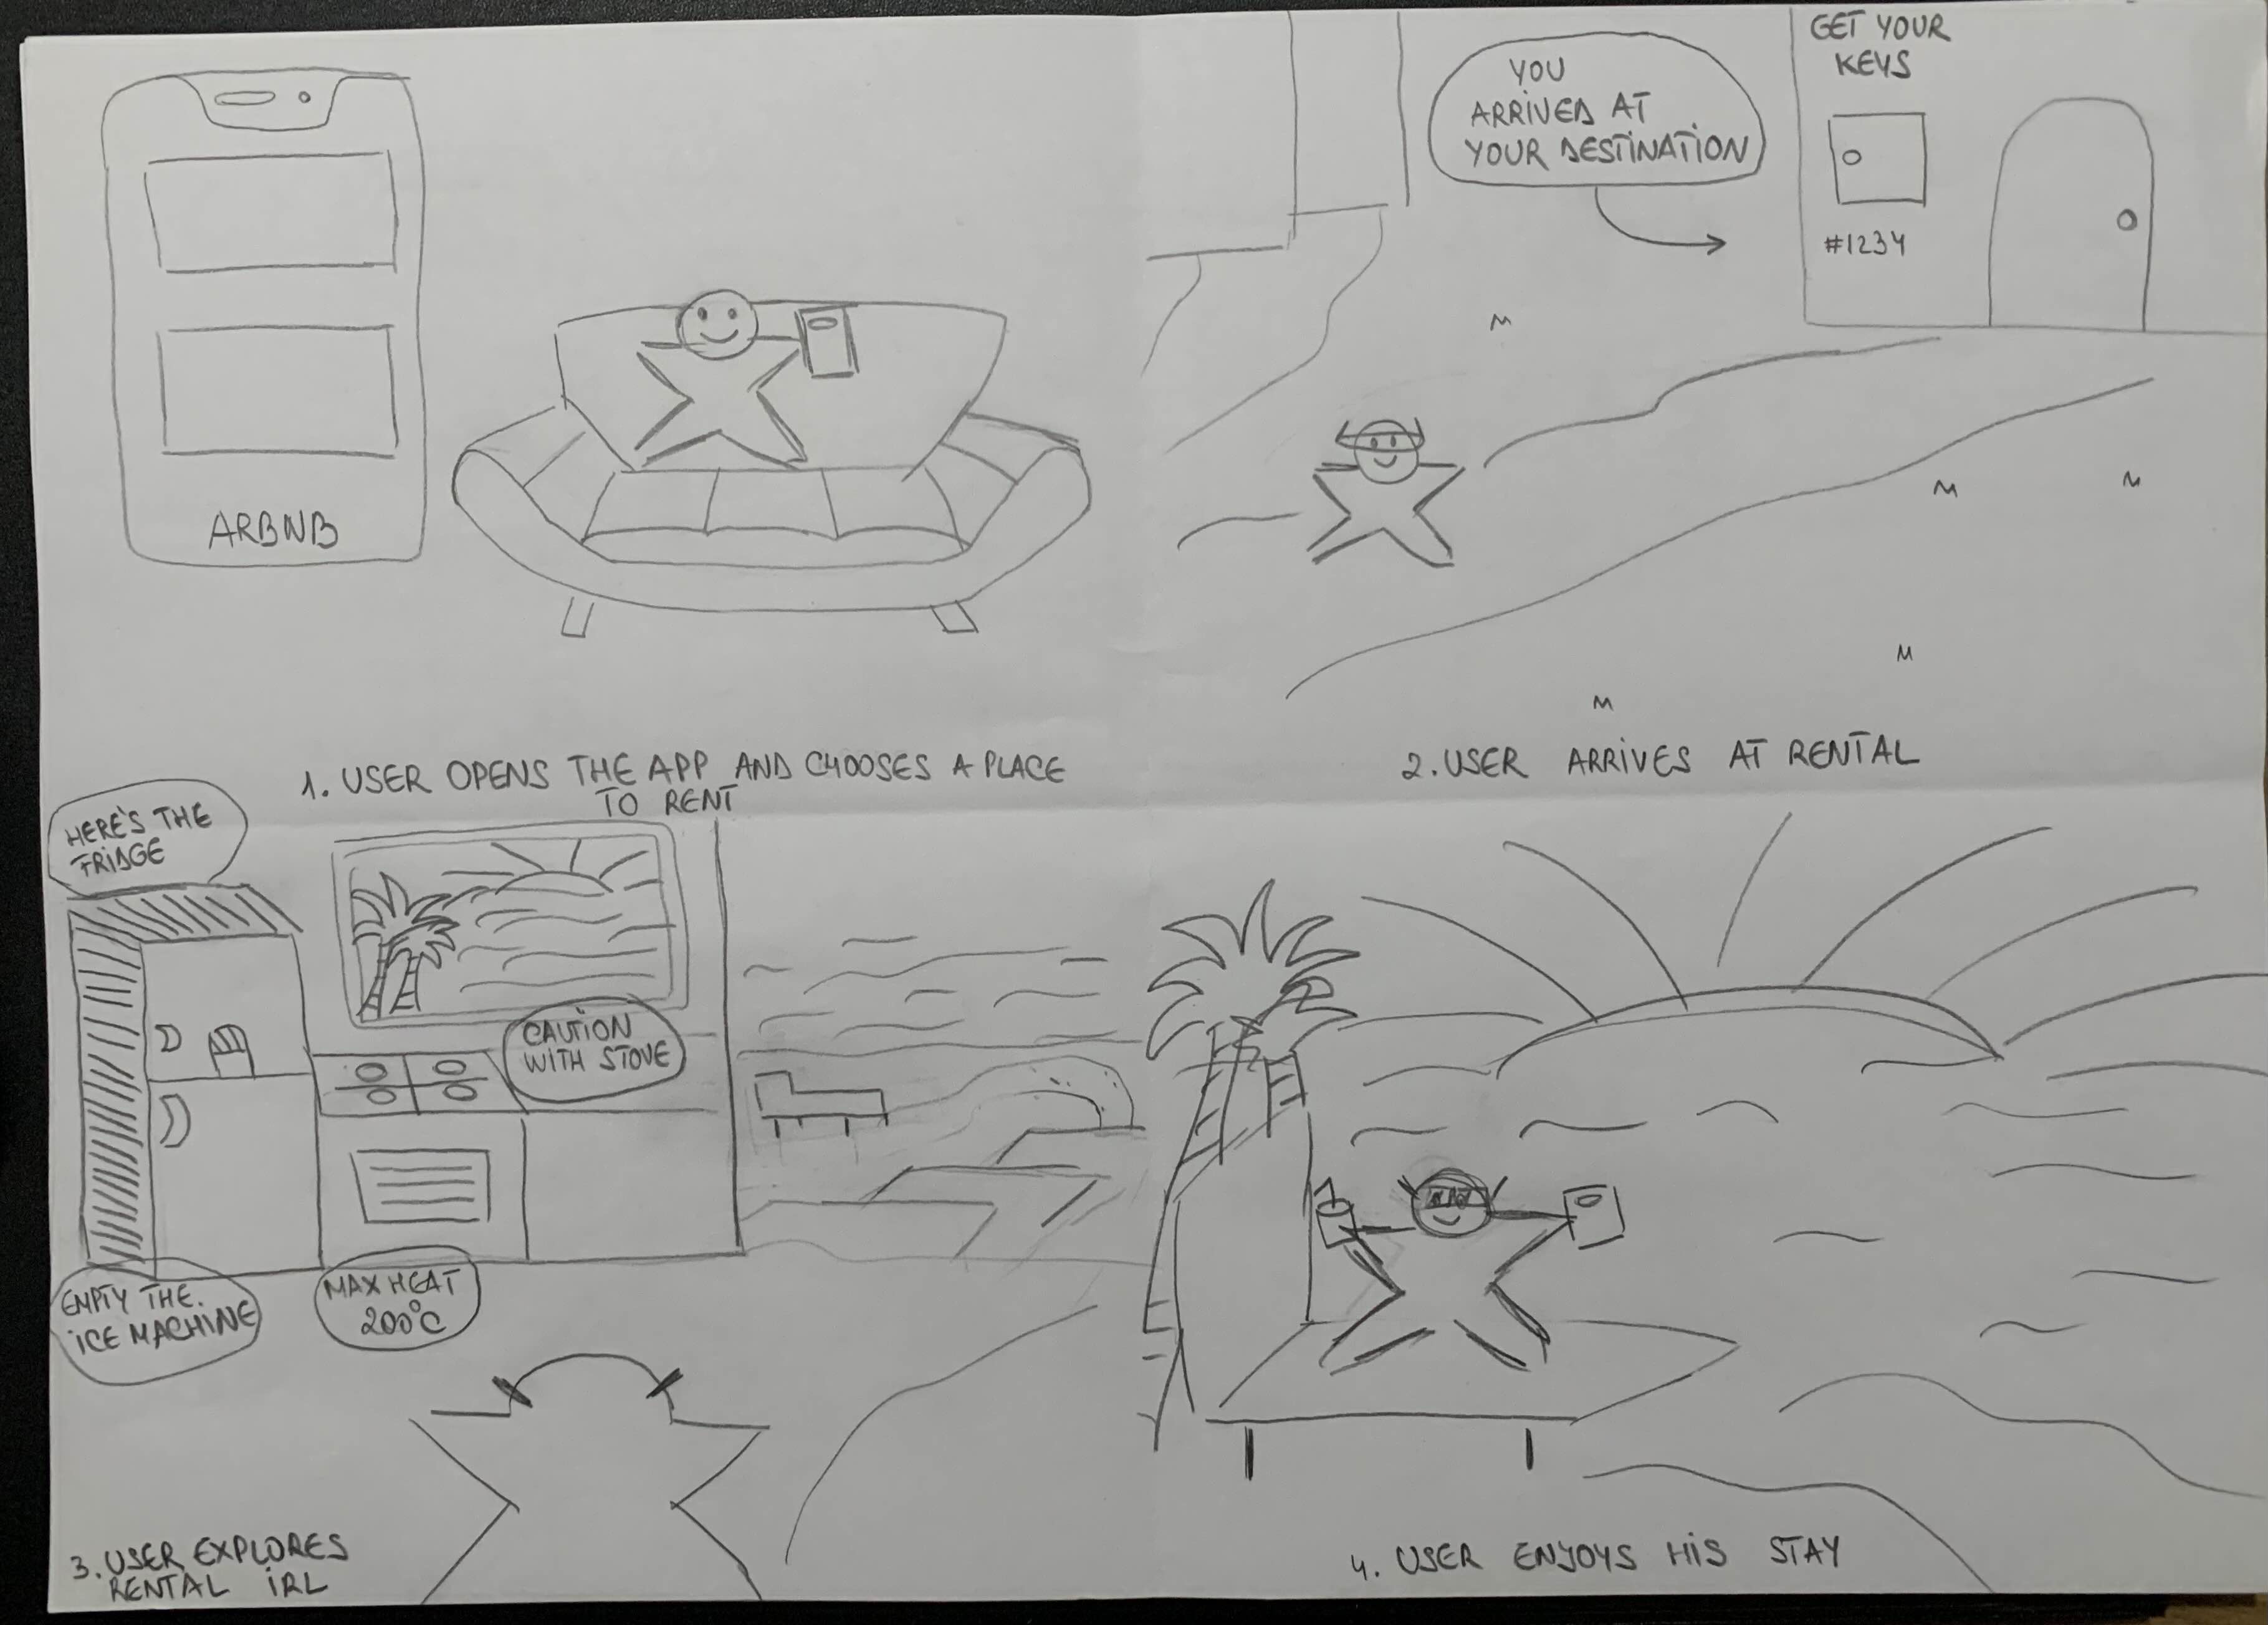 ARBNB
1. USER OPENS THE APP AND CHOOSES A PLACE
TO RENT
YOU
ARRIVED AT
YOUR DESTINATION
GET YOUR
KEYS
#1234
2. USER ARRIVES AT RENTAL
HERE'S THE
FRIDGE
CAUTION
WITH STOVE
EMPTY THE
ICE MACHINE
MAX HEAT
200°C
3. USER EXPLORES
RENTAL IRL
4. USER ENJOYS HIS STAY